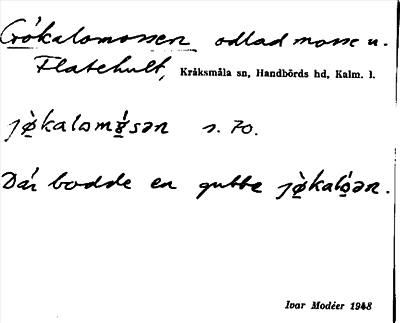 Grökalomossen odlad mosse u.
Flatehult, Kråksmåla sn, Handbörds hd, Kalm. l.
s. 70.
Där bodde en gubbe
Ivar Modéer 1948